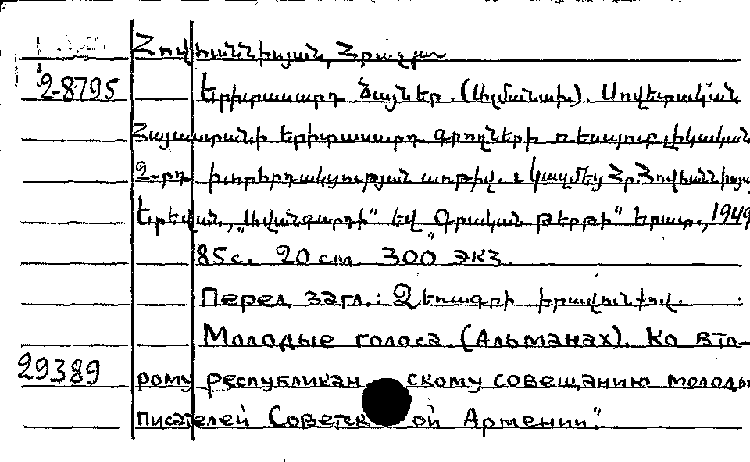 Հովհաննիսյան, Հրաչյա
2-8795 Երիտասարդ ձայներ. (Ալմանախ). Սովետական
Հայաստանի երիտասարդ գրողների ռեսպուբլիկական
2-րդ խորհրդակցության առթիվ. Կազմեց Հր. Հովհաննիսյա
Երևան, „Ավանգարդի" եվ „Գրական թերթի" հրատ., 1949
85 с. 20 cm 300 экз.
Перед загл.: Ձեռագրի իրավունքով.
Молодые голоса (Альманах). Ко вто-
29389 рому республиканскому совещанию молоды
писателей Советской Армении."